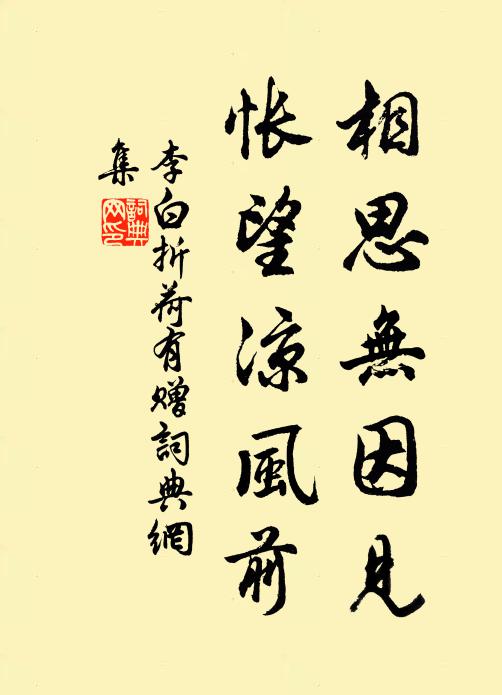 相思無因見
悵望涼風前
李白折荷有赠詞典網
集
詞典
网印